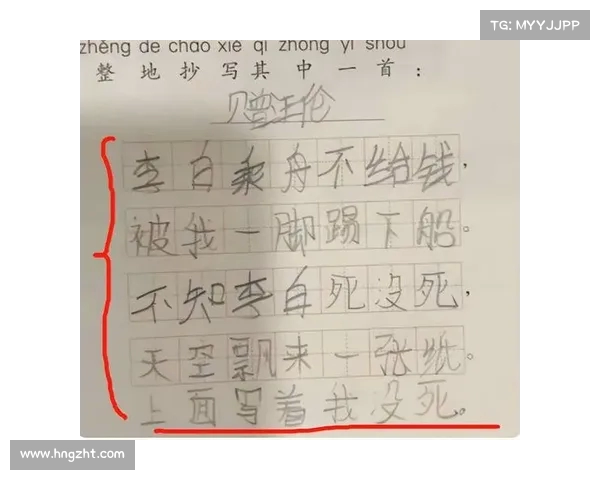 TG: MYYJJPP
zhěng de chāo xiě qí zhōng yì shǒu
整地抄写其中一首：
赠汪伦
李白乘舟不给钱，
被我一脚踢下船。
不知李白死没死，
天空飘来一张纸。
上面写着我没死。
www.hngzht.com